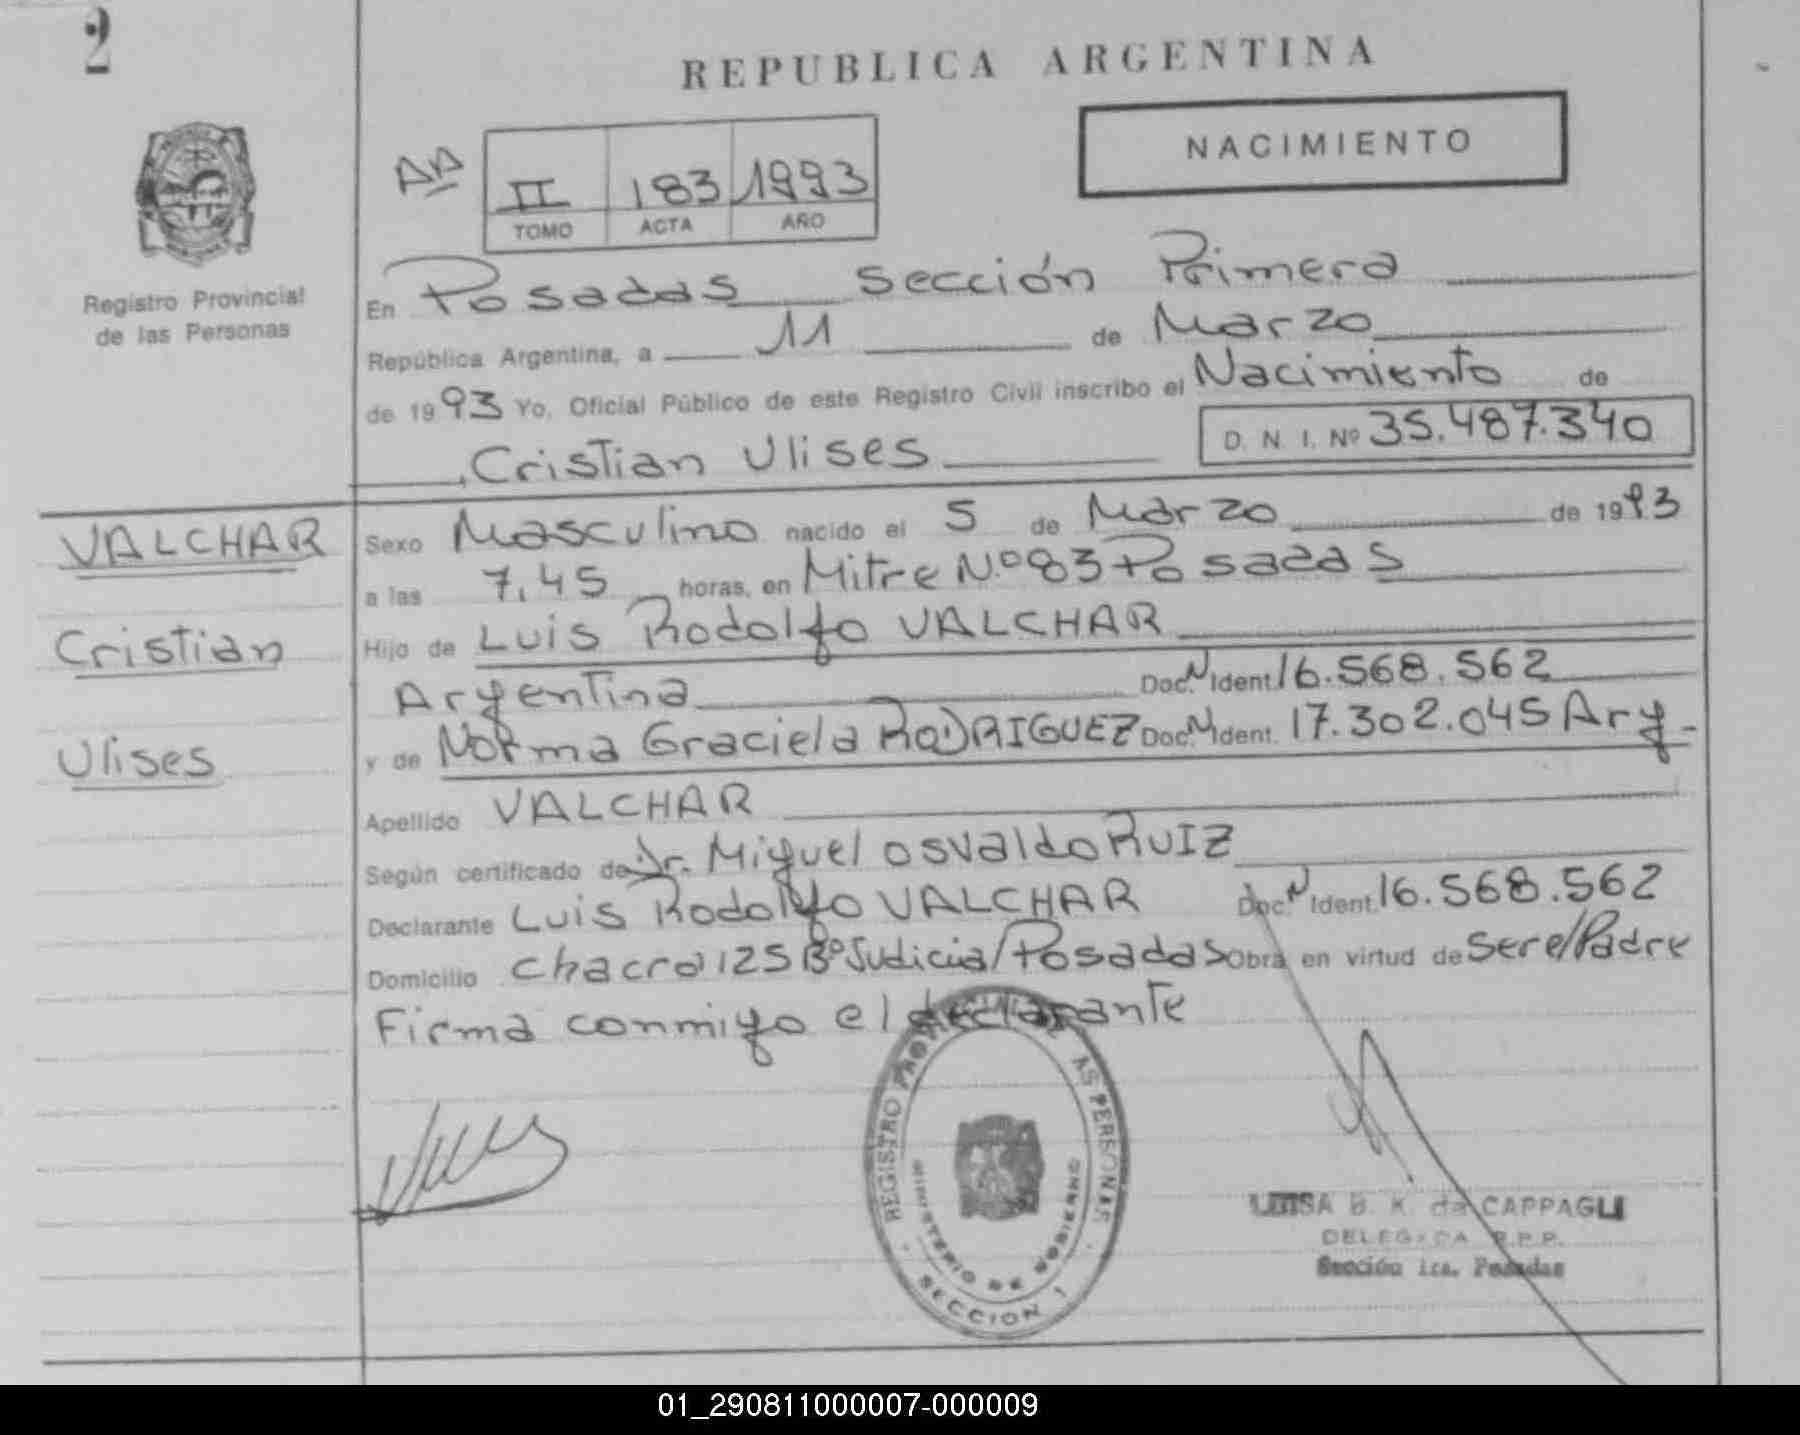 2
REPUBLICA ARGENTINA
NACIMIENTO
AA
II 183 1993
TOMO ACTA AÑO
Registro Provincial
de las Personas
En Posadas Sección Primera
República Argentina, a 11 de Marzo
de 1993 Yo, Oficial Público de este Registro Civil inscribo el Nacimiento de
D. N. I. Nº 35.487.340
Cristian Ulises
VALCHAR
Cristian
Ulises
Sexo Masculino nacido el 5 de Marzo de 1993
a las 7,45 horas, en Mitre N.º 83 Posadas
Hijo de Luis Rodolfo VALCHAR
Argentina Doc. N Ident. 16.568.562
y de Norma Graciela RODRIGUEZ Doc. N Ident. 17.302.045 Arg.
Apellido VALCHAR
Según certificado de Dr. Miguel Osvaldo RUIZ
Declarante Luis Rodolfo VALCHAR Doc. N Ident. 16.568.562
Domicilio Chacra 125 Bº Judicial Posadas Obra en virtud de Ser el Padre
Firma conmigo el declarante
REGISTRO PROVINCIAL DE LAS PERSONAS
MINISTERIO DE GOBIERNO
SECCION 1
LUISA B. K. de CAPPAGLI
DELEGADA R.P.P.
Sección 1ra. Posadas
01_290811000007-000009